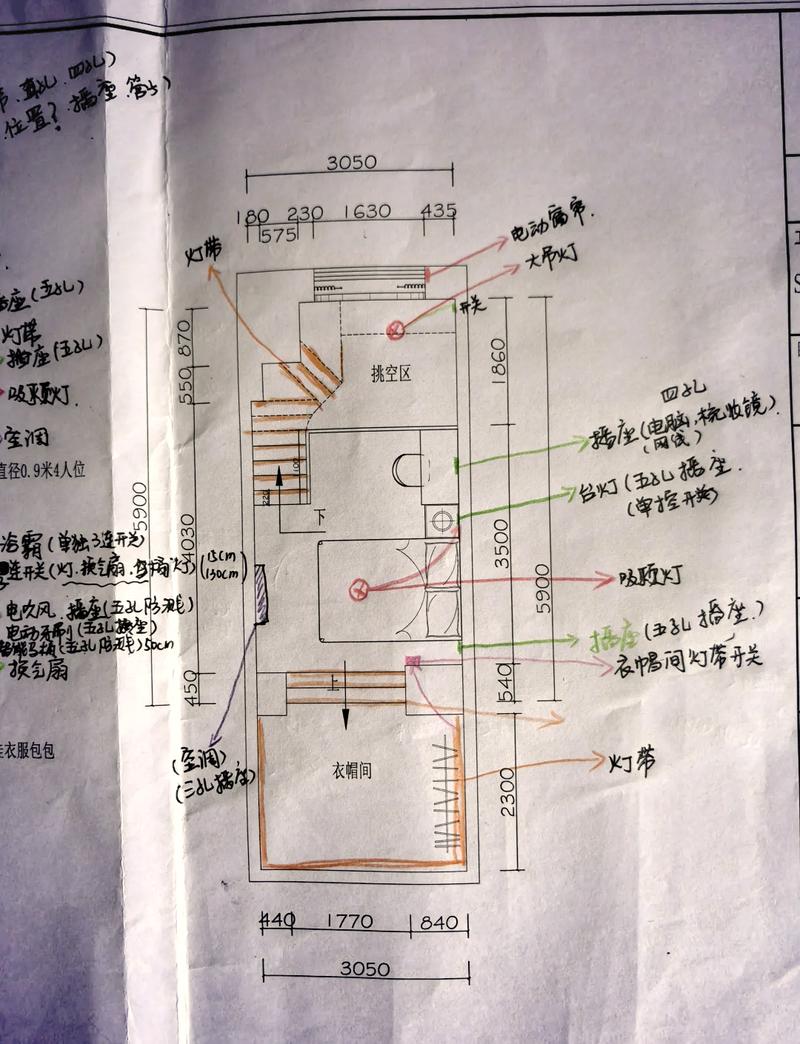 直孔、四孔)
位置? 插座
3050
180 230 1630 435
575
灯带
电动窗帘.
大吊灯
开关
插座(五孔)
灯带
插座(五孔)
吸顶灯.
空调
直径0.9米4人位
870
550
挑空区
1860
四孔
插座(电脑、梳妆镜).
(网线)
台灯(五孔插座.
(单控开关)
100
220
下
5900
4030
3500
5900
浴霸(单独3连开关)
连开关(灯.换气扇.
(15cm
130cm)
电吹风、插座(五孔
电动牙刷(五孔插座)
50cm
换气扇
吸顶灯
插座(五孔插座.)
衣帽间灯带开关
450
上
540
挂衣服包包
(空调)
(三孔插座)
衣帽间
2300
灯带
440 1770 840
3050